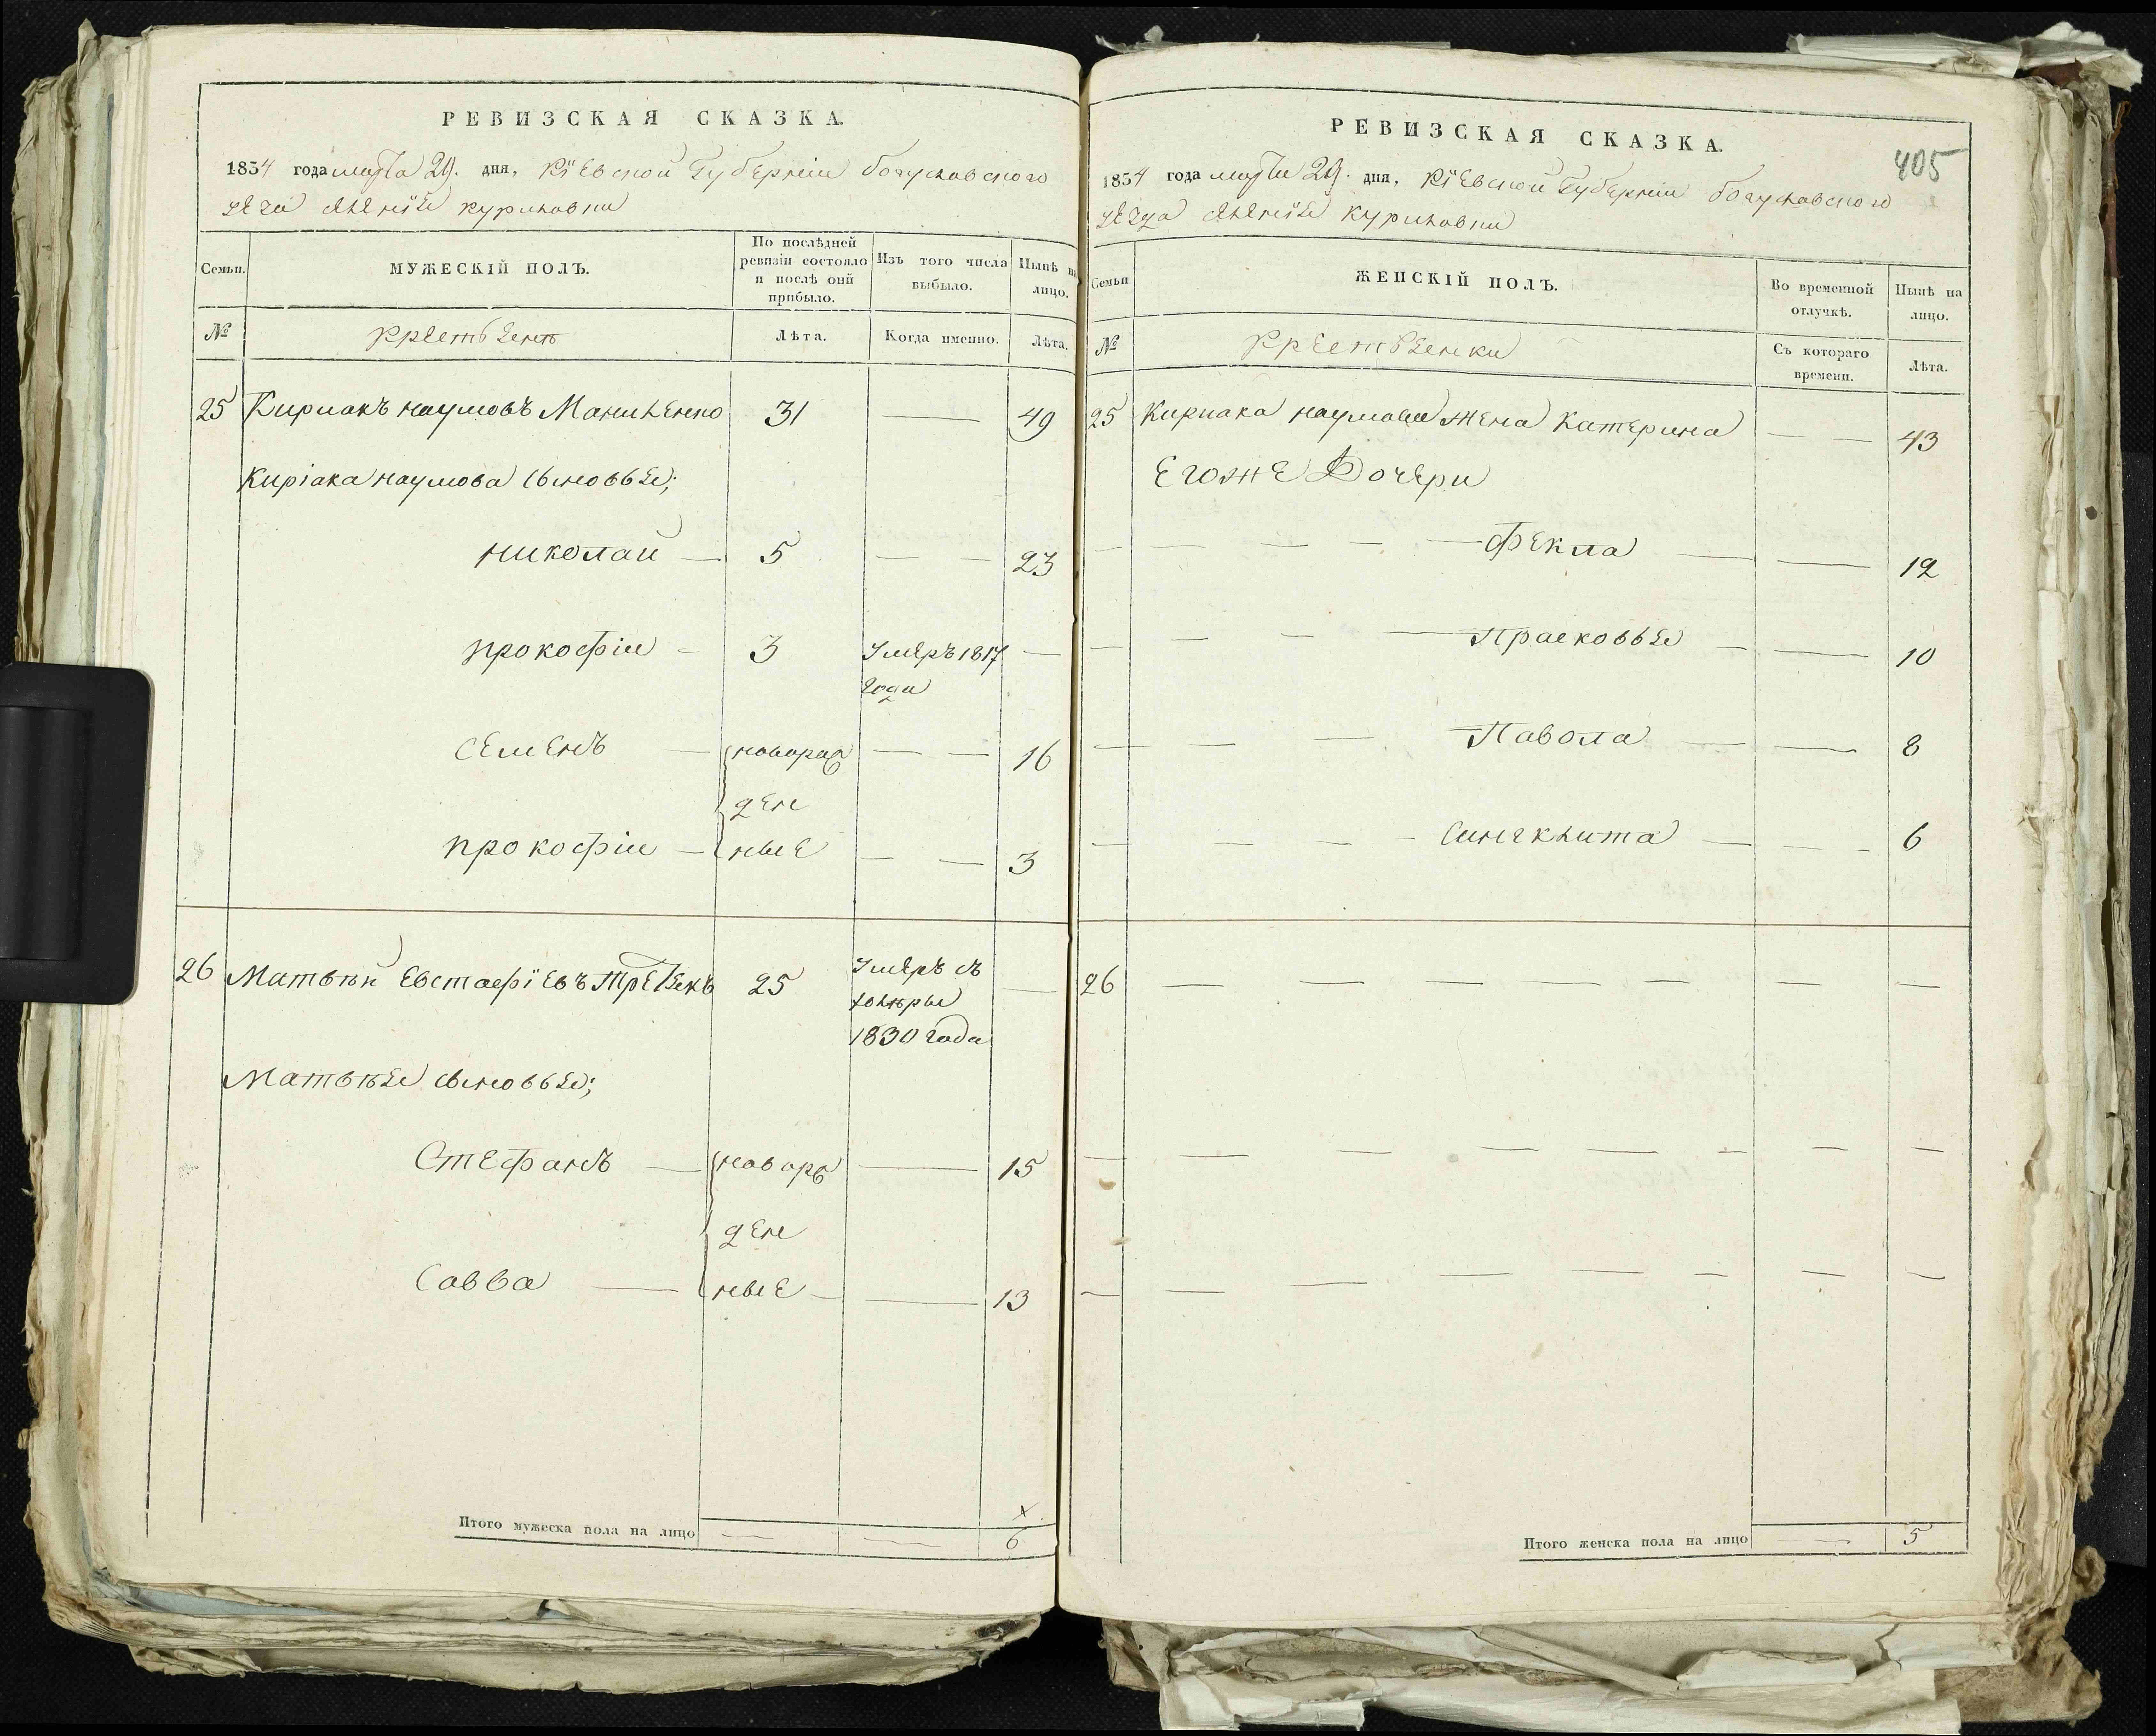 РЕВИЗСКАЯ СКАЗКА.
1834 года марта 29. дня, Кіевской Губерніи богуславского
уезда куриловки
Семьи. МУЖЕСКІЙ ПОЛЪ. По послѣдней ревизіи состояло и послѣ оній прибыло. Изъ того числа выбыло. Нынѣ на лицо.
№ крестьяне Лѣта. Когда именно. Лѣта.
25 Кириакъ наумовъ Маниленко 31 — 49
Киріака наумова сыновья;
николай — 5 — — 23
прокофіи — 3 Умеръ 1817 —
года
Семенъ — новораж — — 16
ден
прокофіи — ные — — 3
26 Матвѣй Евстафіевъ 25 Умеръ съ —
холѣры
1830 года
Матвѣя сыновья;
Стефанъ — новорж — 15
ден
Савва — ные — — 13
Итого мужеска пола на лицо — — 6
405
РЕВИЗСКАЯ СКАЗКА.
1834 года марта 29. дня, Кіевской Губерніи богуславского
уезда куриловки
Семьи ЖЕНСКІЙ ПОЛЪ. Во временной отлучкѣ. Нынѣ на лицо.
№ крестьянки Съ котораго времени. Лѣта.
25 Кириака наумова жена Катерина — — 43
Егоже Дочери
— — — — — Фекла — — 12
— — — — Прасковья — — 10
— — — Павола — — 8
— — — — Синклита — — — 6
26 — — — — — — —
— — — — — — — —
— — — — — — — —
Итого женска пола на лицо — 5